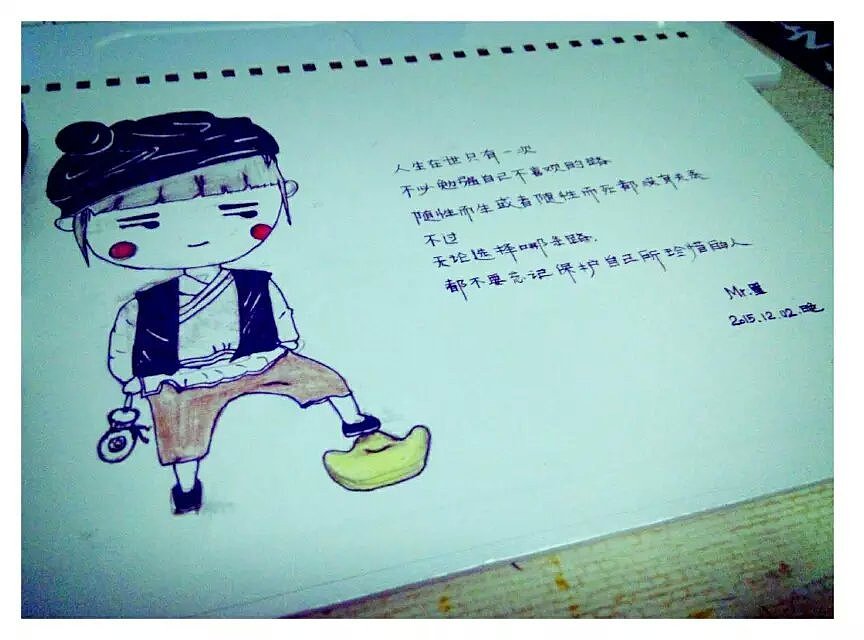 人生在世只有一次
不必勉强自己不喜欢的路
随性而生或者随性而死都没有关系
不过
无论选择哪条路.
都不要忘记保护自己所珍惜的人
Mr.
2015.12.02.晚